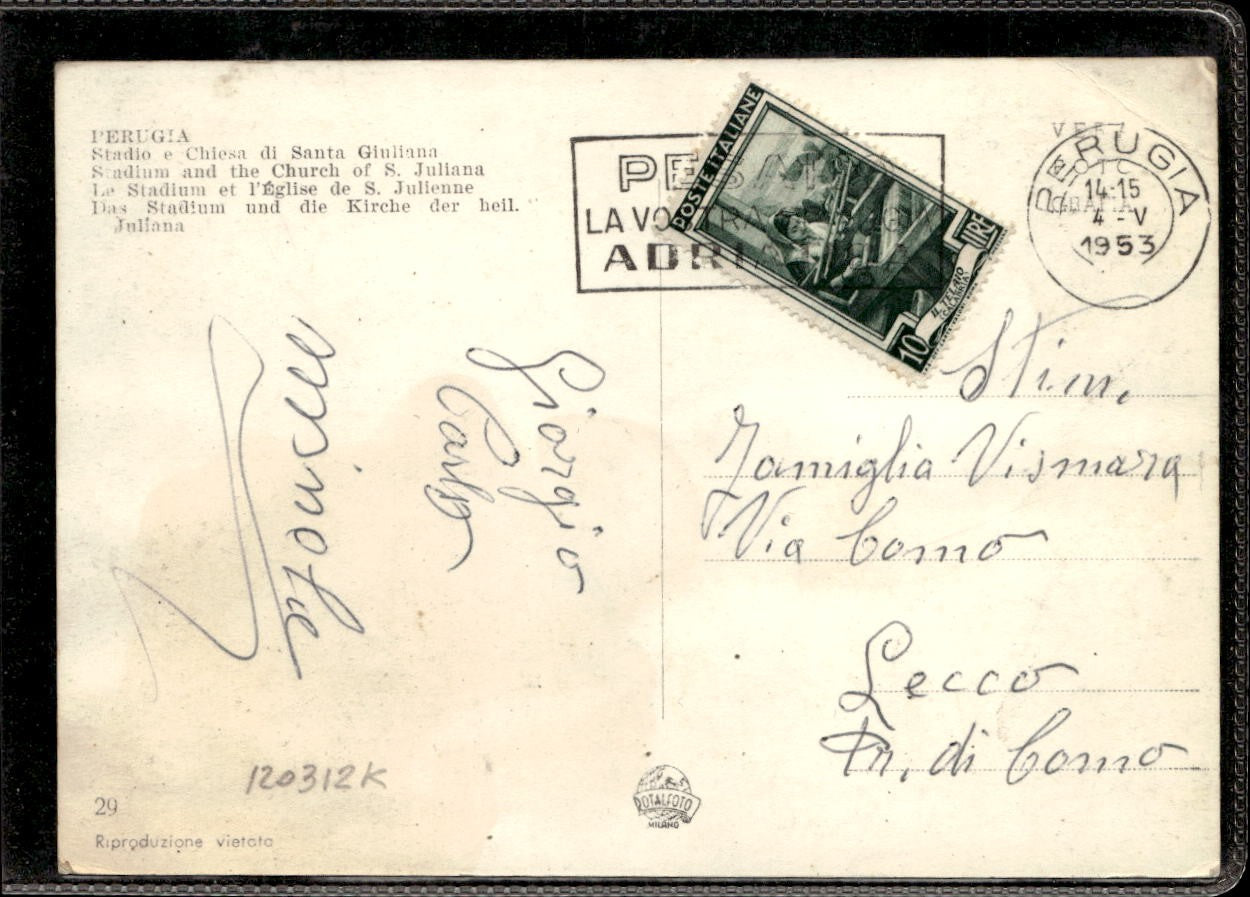 PERUGIA
Stadio e Chiesa di Santa Giuliana
Stadium and the Church of S. Juliana
Le Stadium et l'Église de S. Julienne
Das Stadium und die Kirche der heil.
Juliana
LA VO
ADRI
POSTE ITALIANE
LIRE
IL TELAIO
(CALABRIA)
10
PERUGIA
14·15
4 - V
1953
Stim.
Famiglia Vismara
Via Como
Lecco
Pr. di Como
Giorgio
Carlo
120312K
29
Riproduzione vietata
ROTALFOTO
MILANO